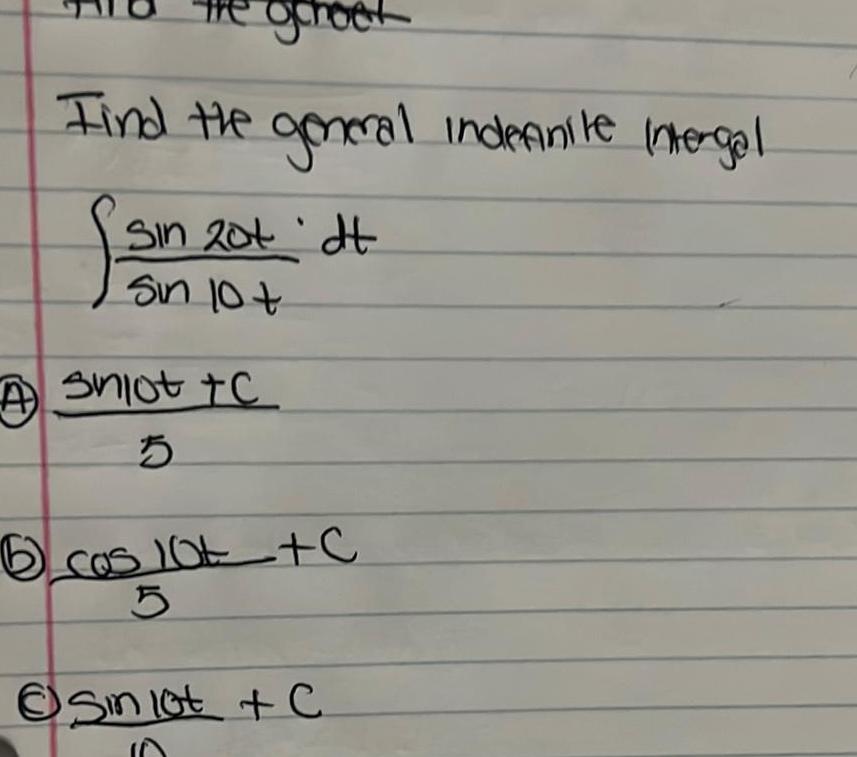 the
Find the general indefinite Intergal
∫ sin 20t · dt
sin 10t
A sin10t + C
5
b cos 10t + C
5
C sin 10t + C
10